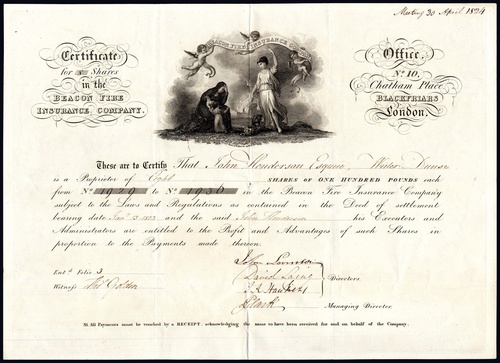 Meeting 30 April 1824
Certificate
for Shares
in the
BEACON FIRE
INSURANCE COMPANY.
BEACON FIRE INSURANCE
Office,
No. 10,
Chatham Place
BLACKFRIARS
London.
These are to Certify That John Henderson Esquire
is a Proprietor of Eight SHARES OF ONE HUNDRED POUNDS each
from No 1929 to No 1936 in the Beacon Fire Insurance Company
subject to the Laws and Regulations as contained in the Deed of settlement
bearing date and the said John Henderson his Executors and
Administrators are entitled to the Profit and Advantages of such Shares in
proportion to the Payments made thereon.
Entd Folio 3
Witness
David
Directors.
Managing Director.
All Payments must be vouched by a RECEIPT, acknowledging the same to have been received for and on behalf of the Company.